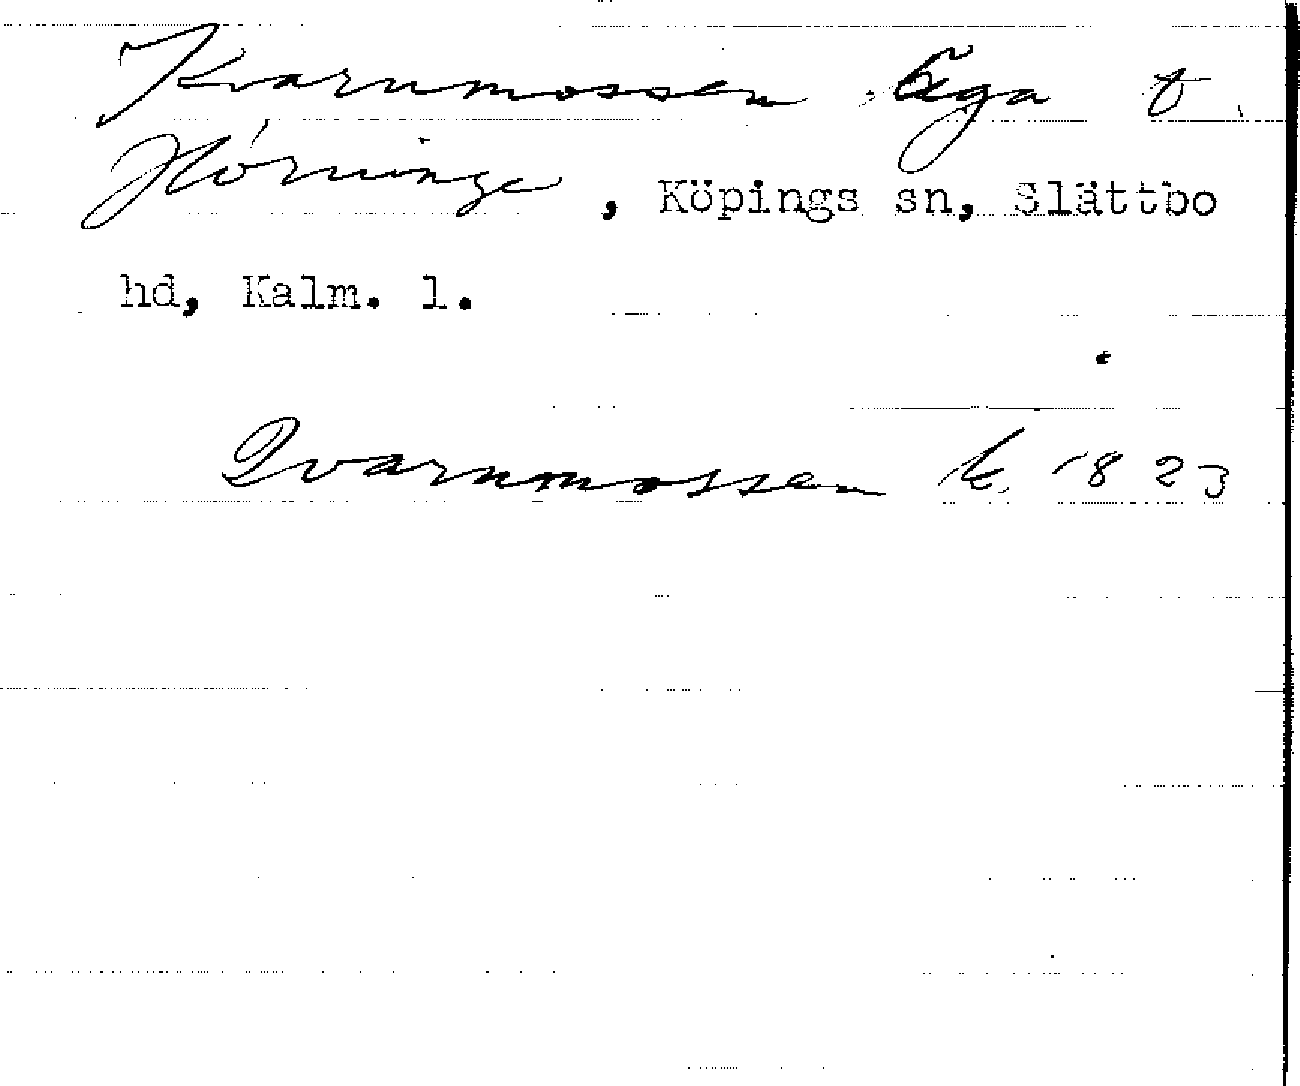 Kvarnmossen äga t.
Hörninge, Köpings sn, Slättbo
hd, Kalm. l.
Qvarnmossen k. 1823